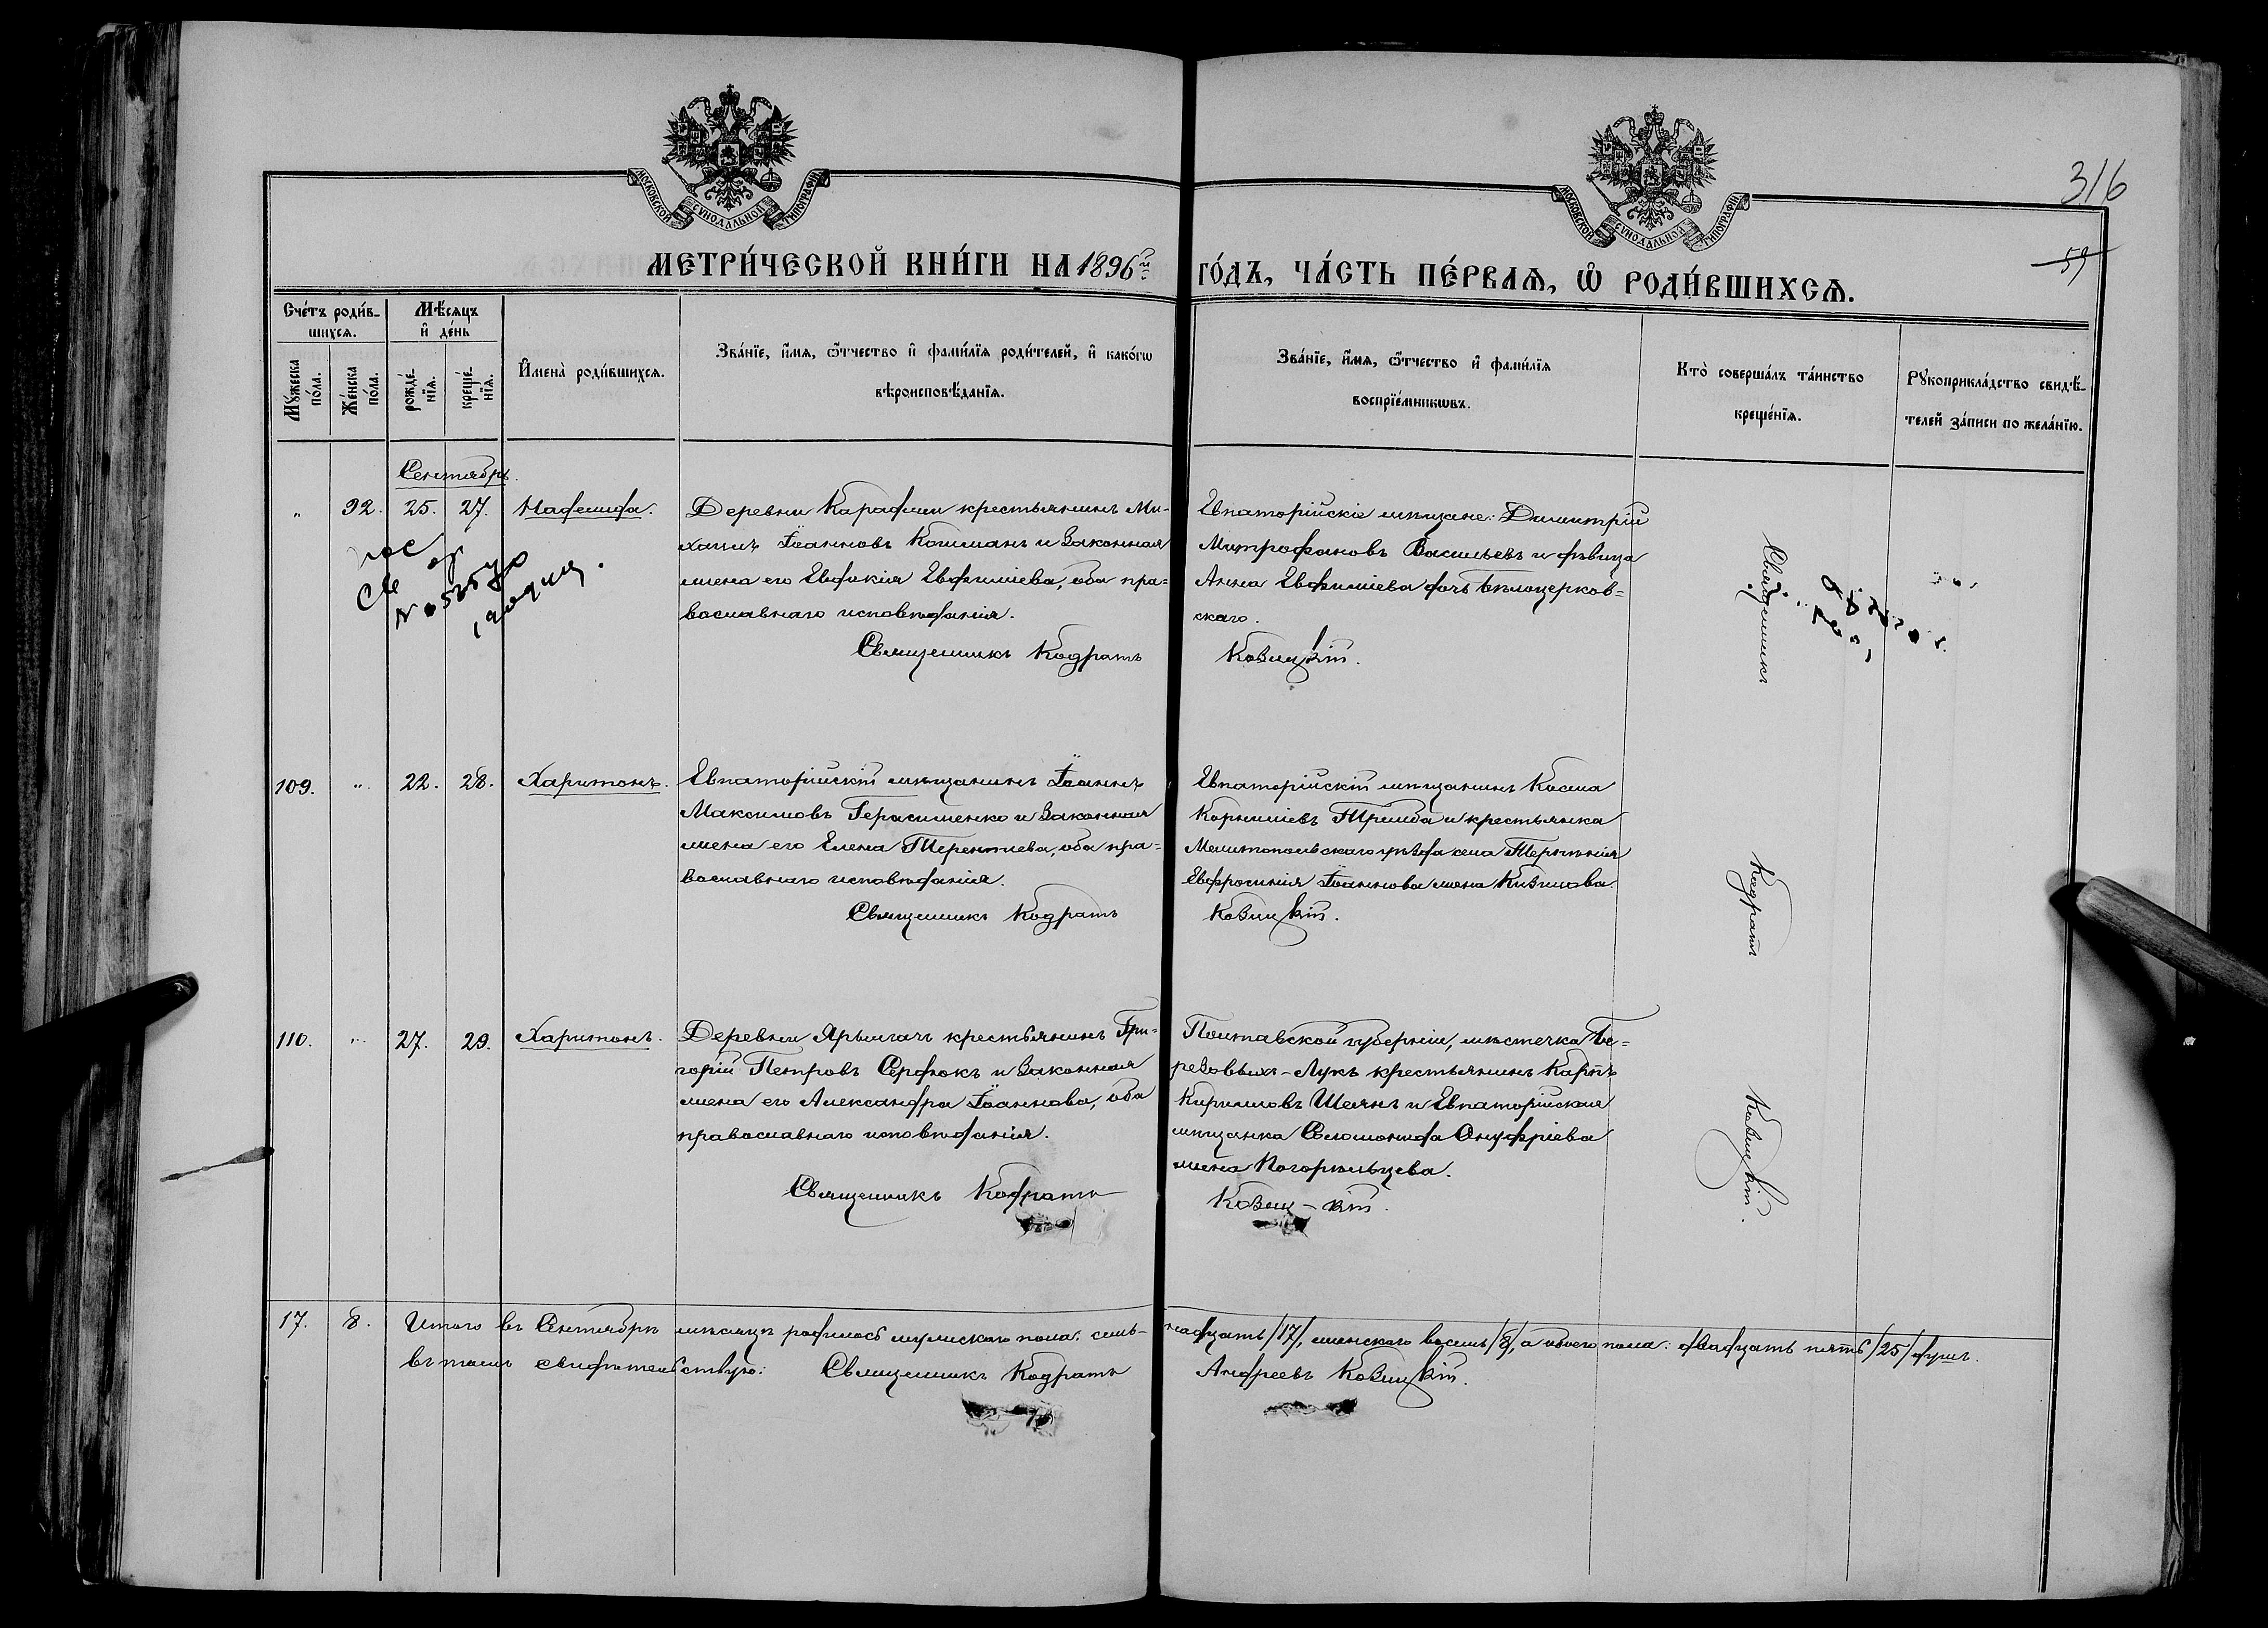 МОСКОВСКОЙ СУНОДАЛЬНОЙ ТИПОГРАФІИ
МОСКОВСКОЙ СУНОДАЛЬНОЙ ТИПОГРАФІИ
316
59
МЕТРИ́ЧЕСКОЙ КНИ́ГИ НА 1896й
ГО́ДЪ, ЧА́СТЬ ПЕ́РВАѦ, Ѽ РОДИ́ВШИХСѦ.
Сче́тъ роди́в-
шихсѧ.
Мꙋ́жеска по́ла.
Же́нска по́ла.
Мѣ́сѧцъ
и҆ де́нь
рожде́-
нїѧ.
креще́-
нїѧ.
И҆мена̀ роди́вшихсѧ.
Зва́нїе, и҆́мѧ, ѻ҆́тчество и҆ фами́лїѧ роди́телей, и҆ како́гѡ
вѣроисповѣ́данїѧ.
Зва́нїе, и҆́мѧ, ѻ҆́тчество и҆ фами́лїѧ
воспрїе́мникѡвъ.
Кто̀ соверша́лъ та́инство
креще́нїѧ.
Рꙋкоприкла́дство свидѣ́-
телей за́писи по жела́нїю.
Сентябрь.
" 92. 25. 27. Надежда.
Деревни Карафли крестьянинъ Ми-
хаилъ Іоанновъ Кошманъ и законная
жена его Евдокія Евфиміева, оба пра-
вославнаго исповѣданія.
Священникъ Кодратъ
Евпаторійскіе мѣщане: Димитрій
Митрофановъ Васильевъ и дѣвица
Анна Евфиміева дочь Бѣлоцерков-
скаго.
Козицкій.
109. " 22. 28. Харитонъ.
Евпаторійскій мѣщанинъ Іоаннъ
Максимовъ Герасименко и законная
жена его Елена Терентіева, оба пра-
вославнаго исповѣданія.
Священникъ Кодратъ
Евпаторійскій мѣщанинъ Косма
Корниліевъ и крестьянка
Мелитопольскаго уѣзда села Терпѣнія
Евфросинія Іоаннова жена Кизилова.
Козицкій.
110. " 27. 29. Харитонъ.
Деревни Ярылгачъ крестьянинъ Гри-
горій Петровъ Сердюкъ и законная
жена его Александра Іоаннова, оба
православнаго исповѣданія.
Священникъ Кодратъ
Полтавской губерніи, мѣстечка Бе-
резовыхъ-Лукъ крестьянинъ Карпъ
Кирилловъ Шеянъ и Евпаторійская
мѣщанка Соломонида Онуфріева
жена Погорѣльцева.
Козиц-кій.
Священникъ
Кодратъ
Козицкій.
17. 8. Итого въ Сентябрѣ мѣсяцѣ родилось мужскаго пола: семь-
надцать /17/, женскаго восемь /8/, а обоего пола: двадцать пять /25/ душъ.
въ томъ свидѣтельствую: Священникъ Кодратъ
Андреевъ Козицкій.